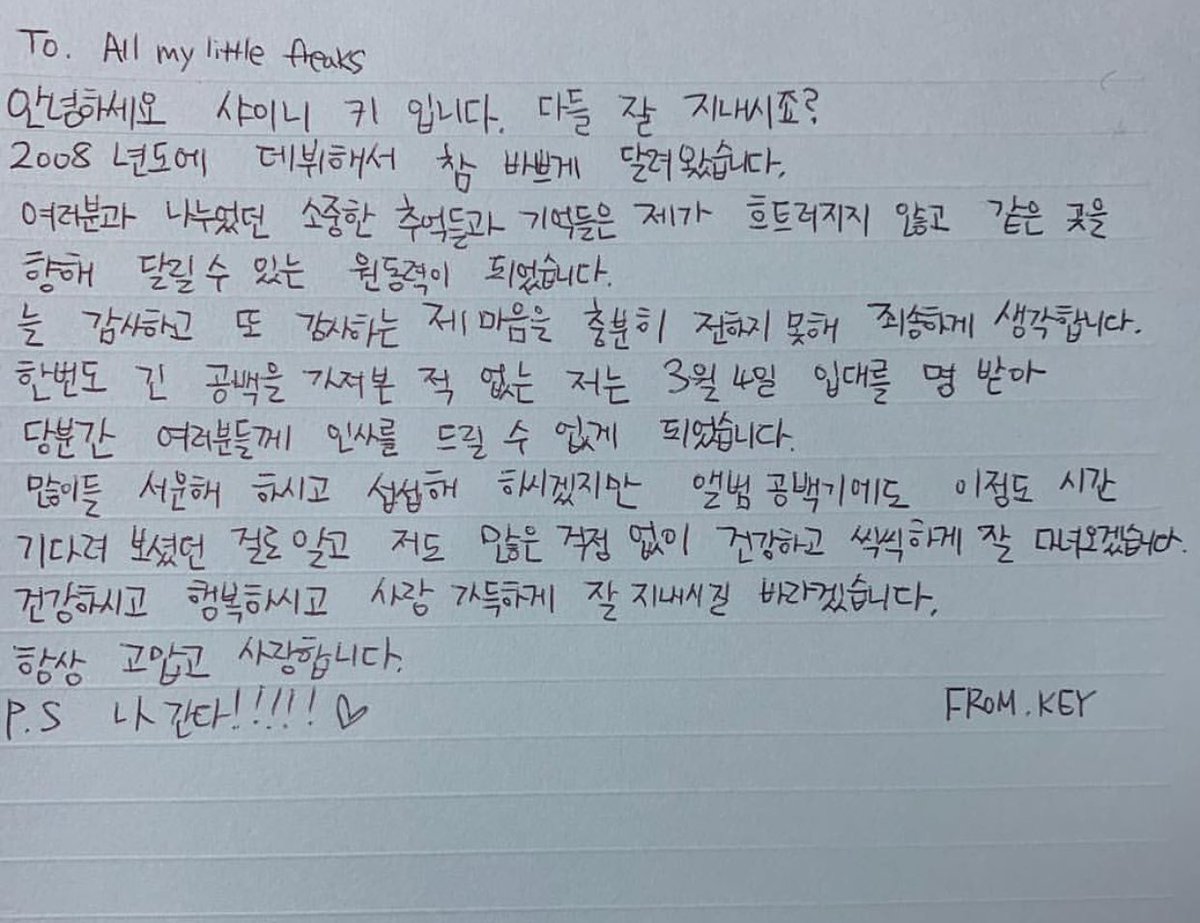 To. All my little freaks
안녕하세요 샤이니 키 입니다. 다들 잘 지내시죠?
2008년도에 데뷔해서 참 바쁘게 달려왔습니다.
여러분과 나누었던 소중한 추억들과 기억들은 제가 흐트러지지 않고 같은 곳을
향해 달릴 수 있는 원동력이 되었습니다.
늘 감사하고 또 감사하는 제 마음을 충분히 전하지 못해 죄송하게 생각합니다.
한번도 긴 공백을 가져본 적 없는 저는 3월 4일 입대를 명 받아
당분간 여러분들께 인사를 드릴 수 없게 되었습니다.
많이들 서운해 하시고 섭섭해 하시겠지만 앨범 공백기에도 이정도 시간
기다려 보셨던 걸로 알고 저도 많은 걱정 없이 건강하고 씩씩하게 잘 다녀오겠습니다.
건강하시고 행복하시고 사랑 가득하게 잘 지내시길 바라겠습니다.
항상 고맙고 사랑합니다.
P.S 나 간다!!!!!! ♡ FROM.KEY